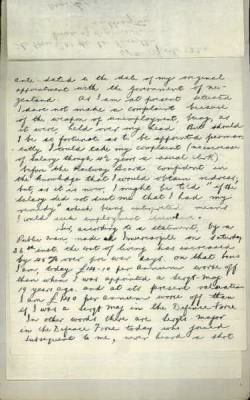 ante-dated to the date of my original
appointment with the Government of New
Zealand. As I am at present situated
I dare not make a complaint because
of the weapon of unemployment, being, as
it were held over my head. But should
I be so fortunate as to be appointed perman-
ently I could take my complaint
of salary though 12½ years a
before the Railway Board confident in
the knowledge that I would obtain redress,
but, as it is now, I might be told "if the
salary did not suit me that I had my
remedy" which being interpreted means
I could seek employment elsewhere.
Sir, according to a statement, by a
Public man, made at Invercargill on Saturday
26th inst. the cost of living has increased
by 45% over pre war days. On that basis
I am, today per annum worse off
than when I was appointed a Sergt-Maj
19 years ago, and at its present valuation
I am £140 per annum worse off than
if I was a Sergt Maj in the Defence Force
In other words there are Sergts-Major
in the Defence Force today who joined
subsequent to me, never heard a shot